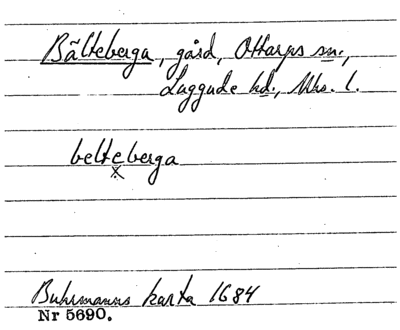 Bälteberga, gård, Ottarps sn.,
Luggude hd., Mhs. l.
belteberga
x
Buhrmanns karta 1684
Nr 5690.